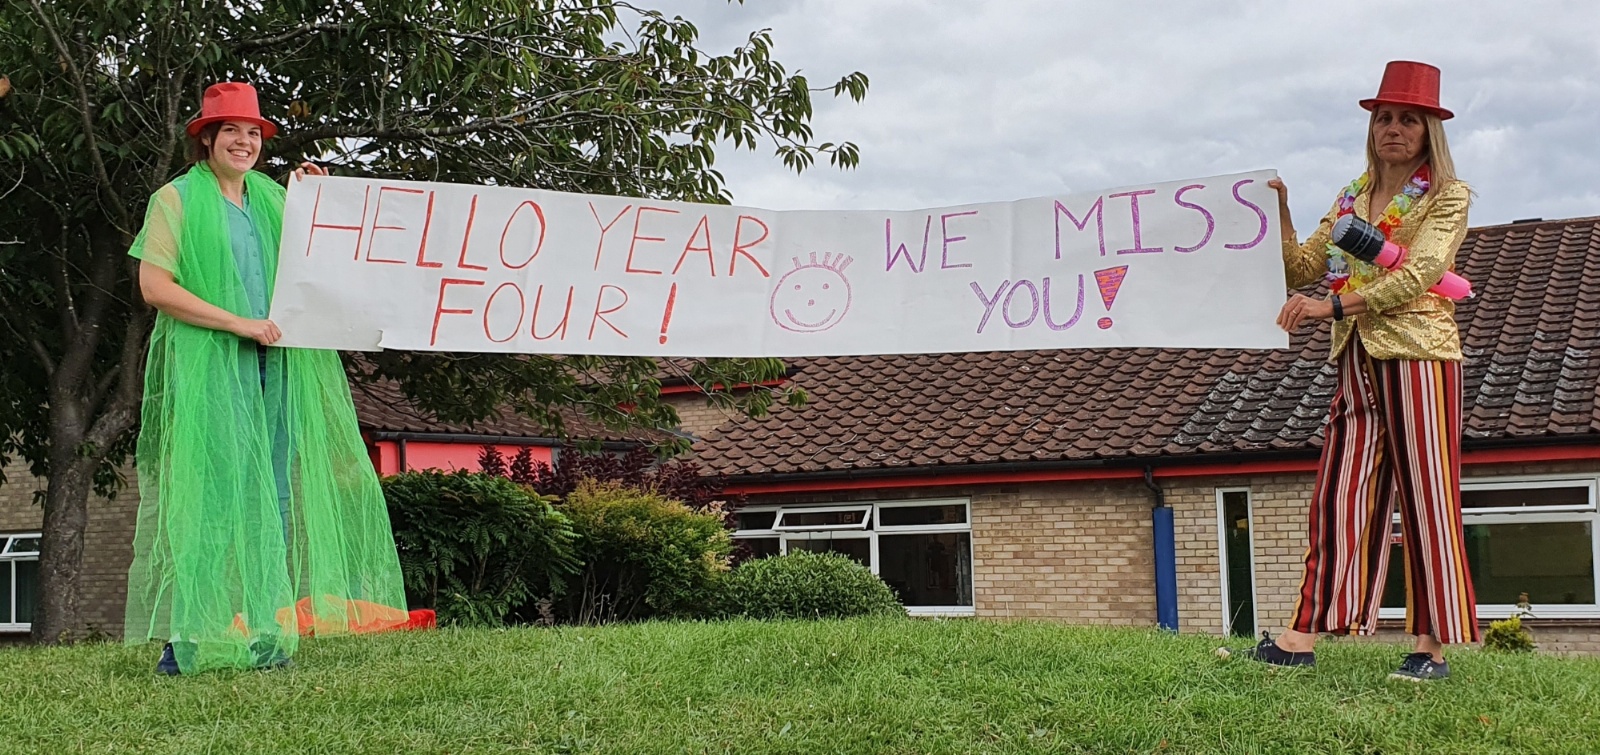 HELLO YEAR
FOUR!
WE MISS
YOU!